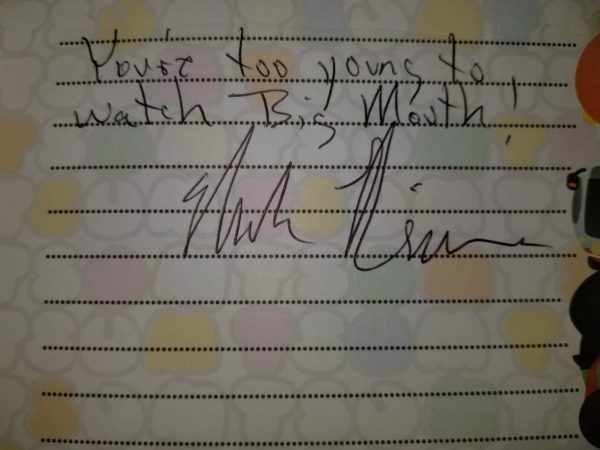 You're too young to
watch Big Mouth!